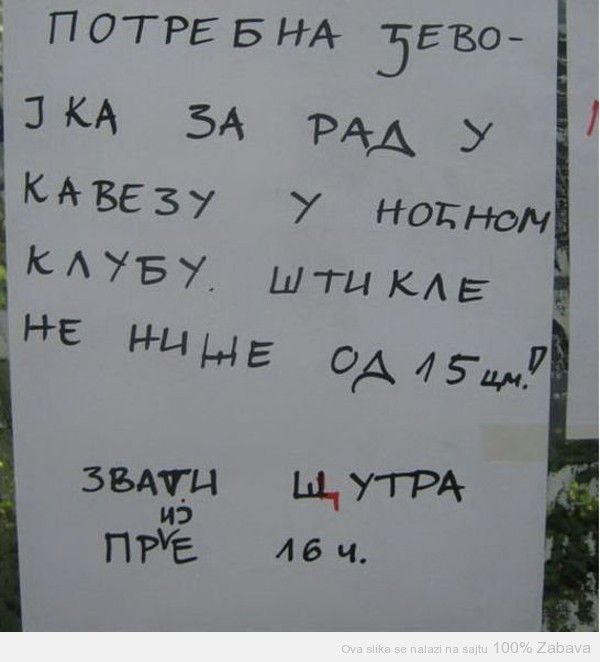 ПОТРЕБНА ЂЕВО-
ЈКА ЗА РАД У
КАВЕЗУ У НОЋНОМ
КЛУБУ. ШТИКЛЕ
НЕ НИЖЕ ОД 15 цм.!
ЗВАТИ ЩУТРА
ПРИЈЕ 16 ч.
Ova slika se nalazi na sajtu 100% Zabava